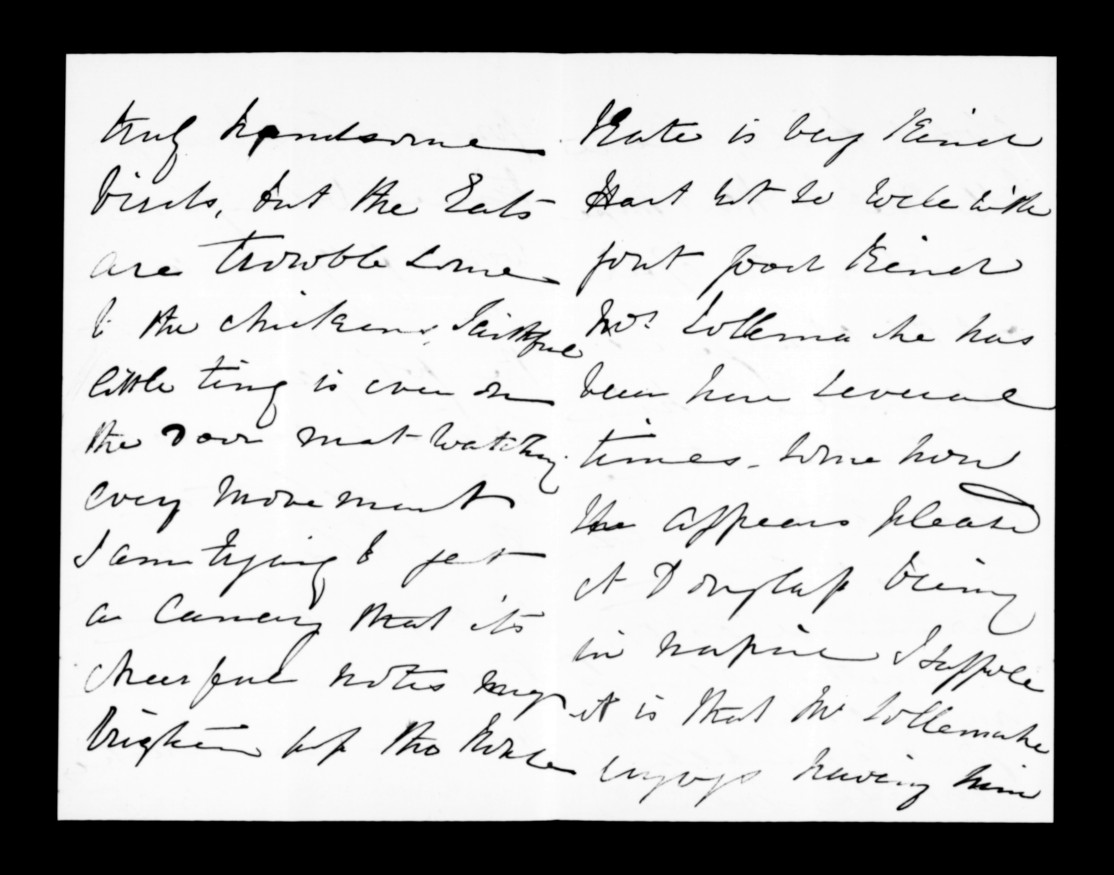 truly handsome
birds, but the Cats
are trowble some
to the chickens, Faithful
little ting is ever on
the Door mat watching
every movement
I am trying to get
a Canary that its
cheerful notes may
brighten up the House
Kate is very Kind
Hart not so well with
gout good Kind
Mrs Tollemache has
been here several
times. some how
She appears pleased
at Douglass being
in napier I suppose
it is that Mr Tollemache
enjoys having him